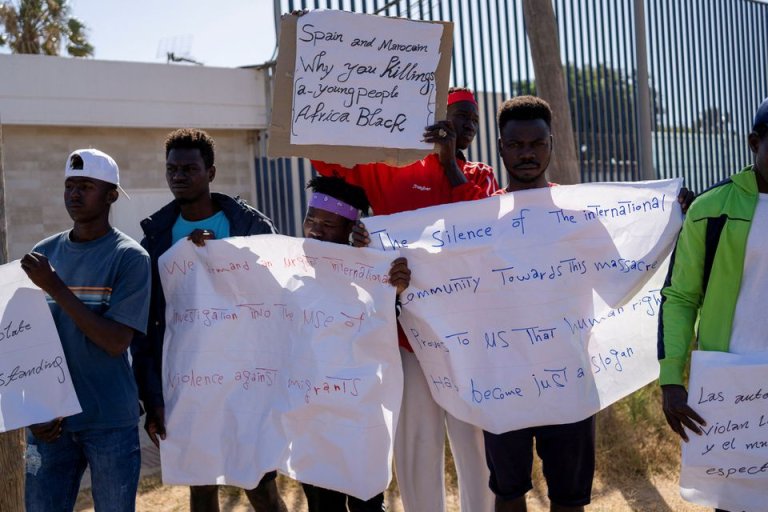 Spain and Marocuim
Why you Killings
a-young people
Africa Black
olate
standing
We demand an urgent international
investigation into the use of
violence against migrants
The silence of The international
community Towards This massacre
Proves To us That human righ
Has become just a slogan
Las auto
violan l
y el mu
espect